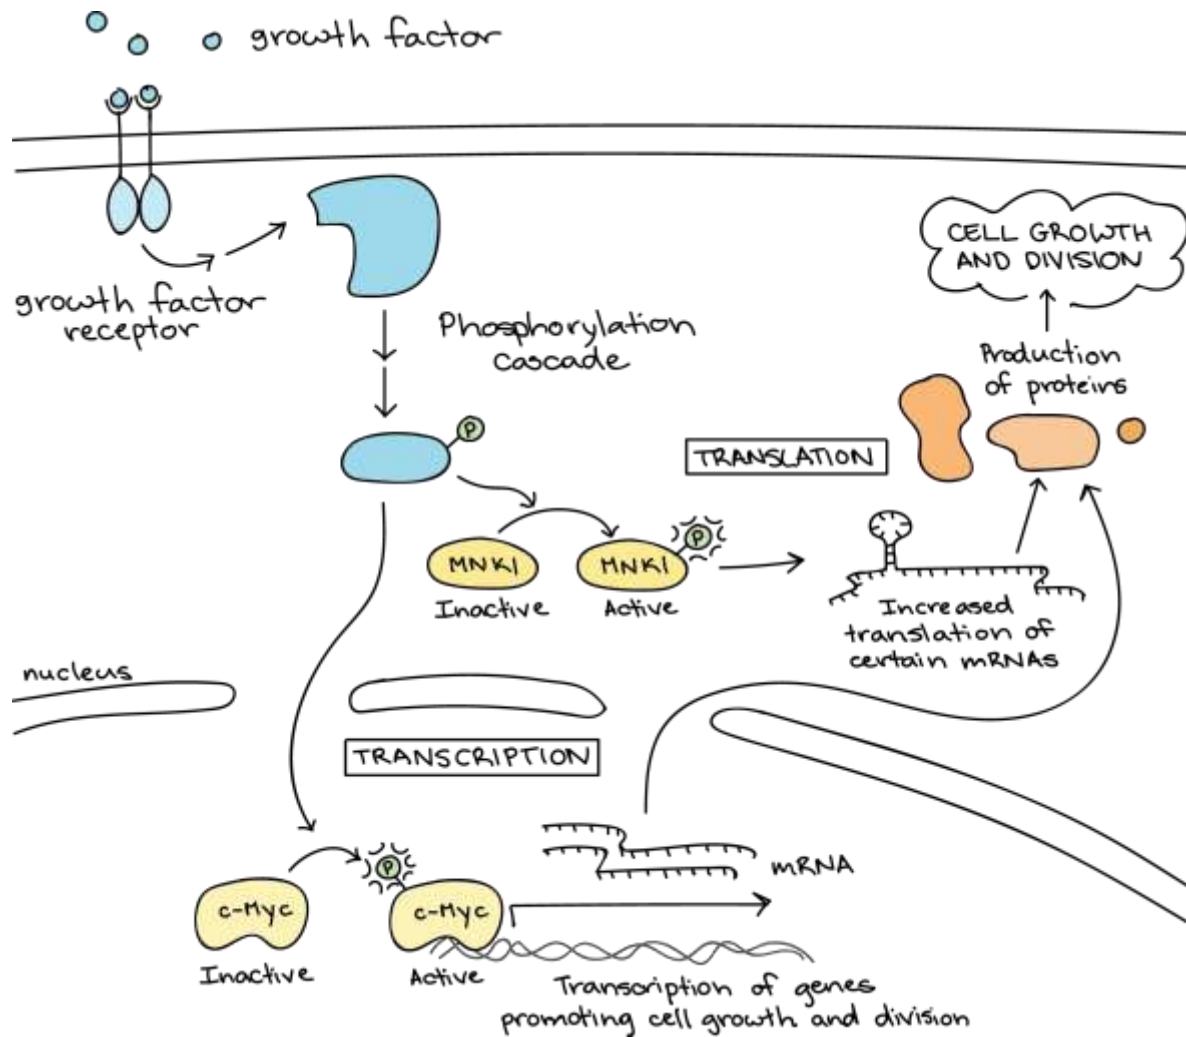 growth factor
growth factor
receptor
Phosphorylation
cascade
CELL GROWTH
AND DIVISION
Production
of proteins
P
TRANSLATION
MNK1
Inactive
MNK1
P
Active
Increased
translation of
certain mRNAs
nucleus
TRANSCRIPTION
mRNA
c-Myc
Inactive
P
c-Myc
Active
Transcription of genes
promoting cell growth and division